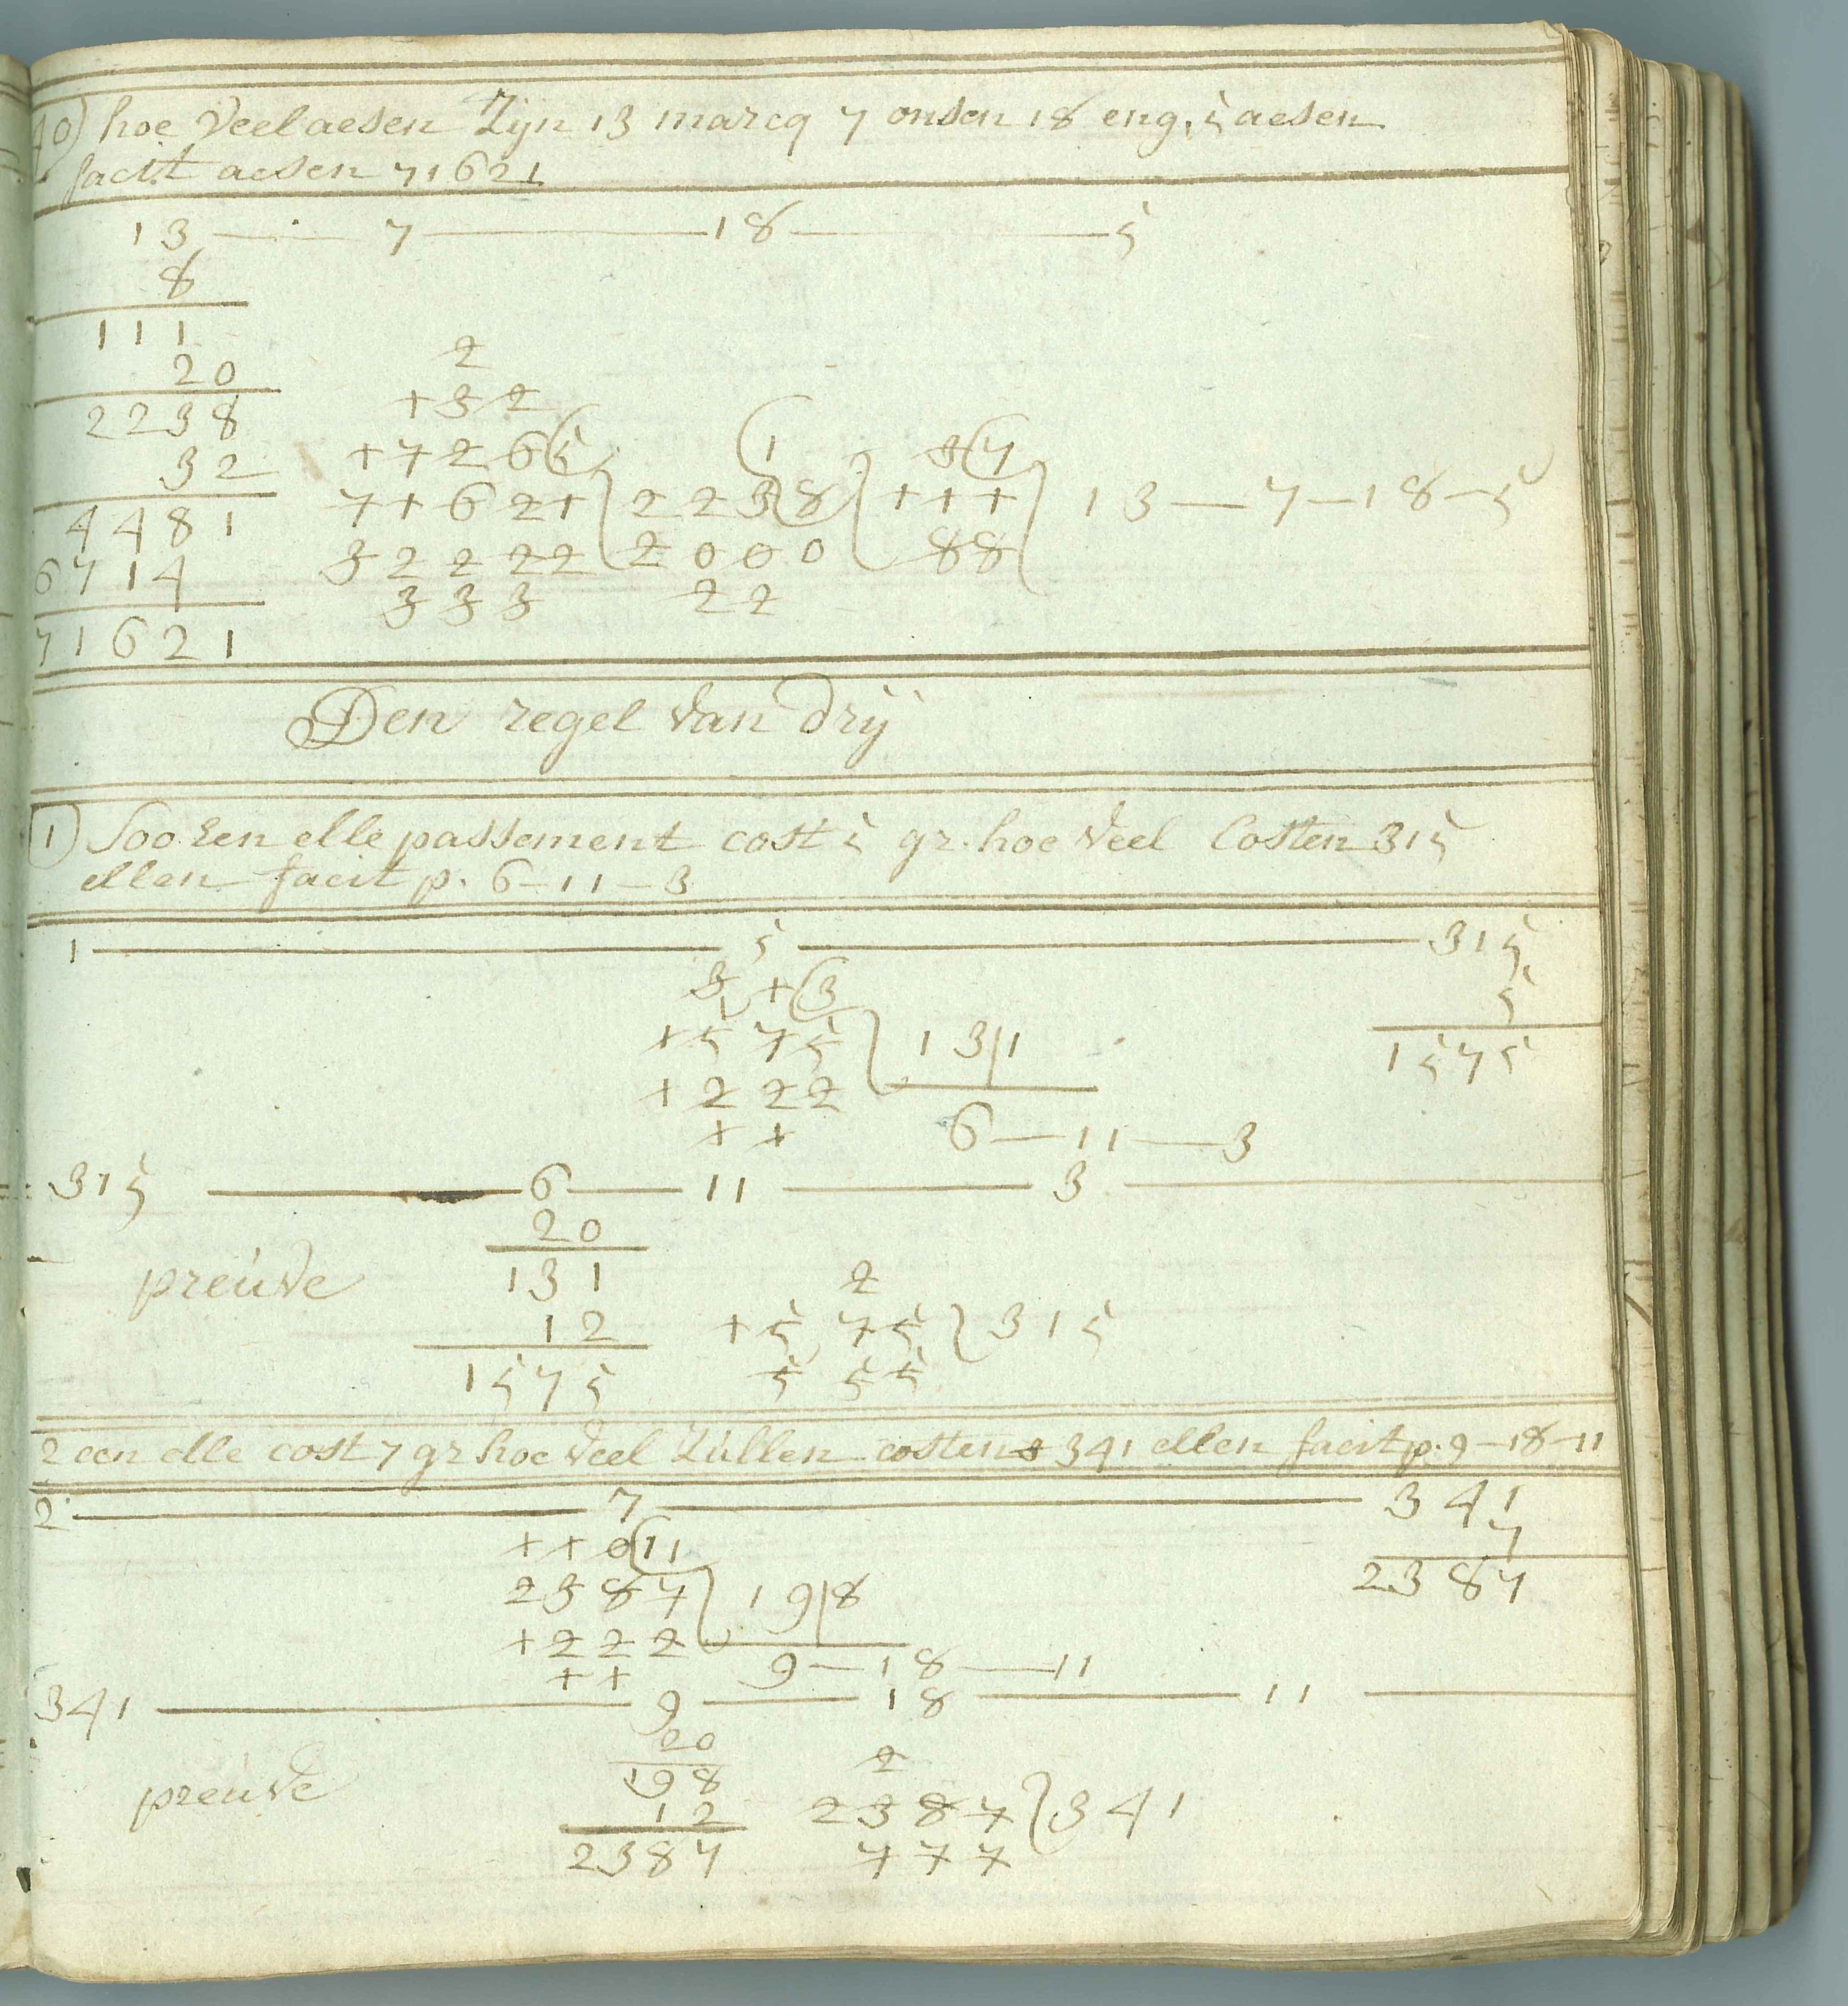 40) hoe veel aesen zijn 13 marcq 7 onsen 18 eng. 5 aesen
facit aesen 71621
13 — 7 — 18 — 5
8
111
20
2238
32
4481
6714
71621
2
132
17266(5
71621 } 2238 } 111 } 13 — 7 — 18 — 5
(1
3(7
32222 2000 88
333 22
Den regel van drij
1) Soo een elle passement cost 5 gr. hoe veel Costen 315
ellen facit p. 6 — 11 — 3
1 — 5 — 315
5
1575
3 1 (3
1575 } 13|1
1222
11 6 — 11 — 3
315 — 6 — 11 — 3
20
preuve 131
12
1575
2
1575 } 315
555
2 een elle cost 7 gr hoe veel zullen costen 341 ellen facit p. 9 — 18 — 11
2 — 7 — 341
7
2387
110(11
2387 } 19|8
1222
11 9 — 18 — 11
341 — 9 — 18 — 11
20
preuve 198
12
2387
2
2387 } 341
777